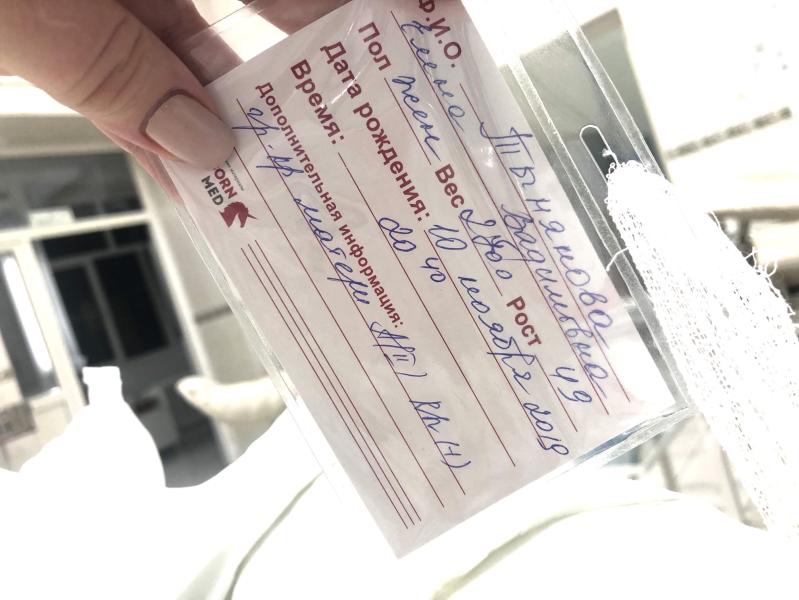 Ф.И.О. Тынянова
Елена Вадимовна
Пол жен Вес 2800 Рост 49
Дата рождения: 10 ноября 2019
Время: 20 40
Дополнительная информация:
гр. кр матери A(II) Rh(+)
ORN
MED